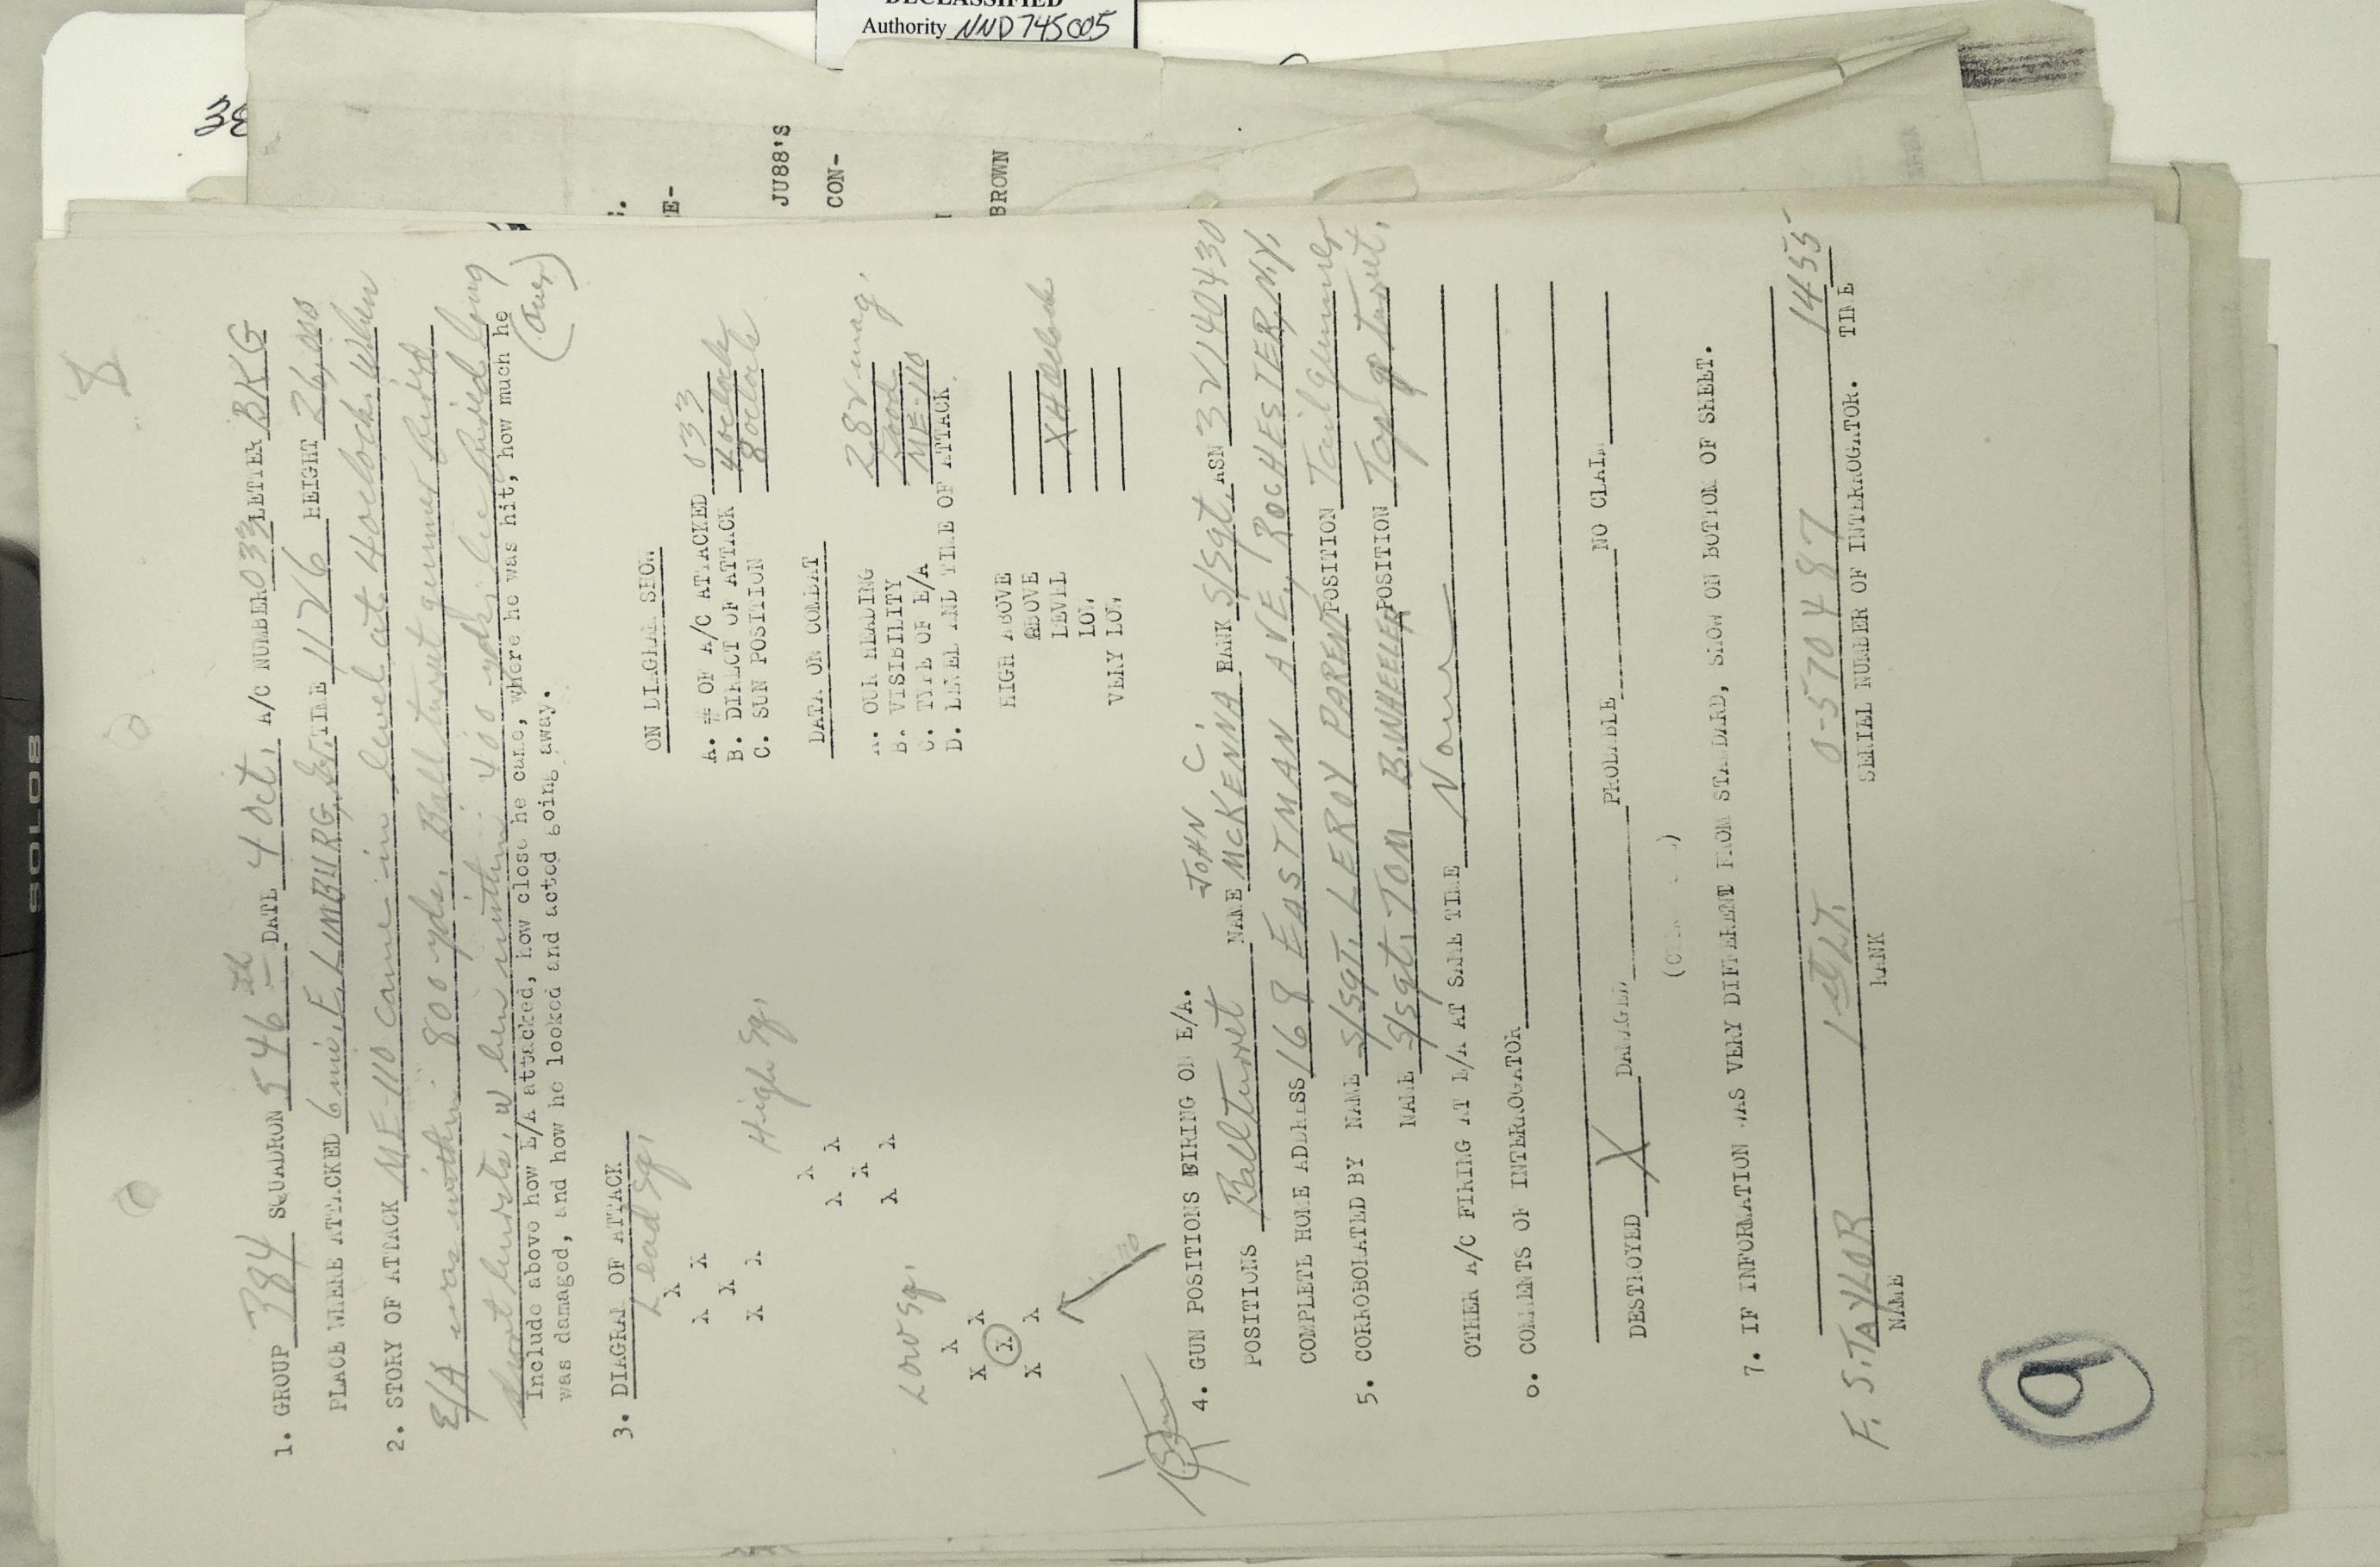 DECLASSIFIED
Authority NND 745005
38
JU88'S
CON-
BROWN
E-
SOLO8
8
1. GROUP 384 SQUADRON 546 th DATE 4 Oct. A/C NUMBER 033 LETTER BKG
PLACE WHERE ATTACKED 6 mi. E. LIMBURG, TIME 1126 HEIGHT 26,000
2. STORY OF ATTACK ME-110 came in level at 4 oclock. When
E/A was within 800 yds. Ball turret gunner fired
short bursts, when within 400 yds. he fired long
(Over)
Include above how E/A attacked, how close he came, where he was hit, how much he
was damaged, and how he looked and acted going away.
3. DIAGRAM OF ATTACK
Lead Sq.
X
X X
X
X X
High Sq.
X
X X
X
X X
Low Sq.
X
X X
X
X X
110
ON DIAGRAM SHOW
A. # OF A/C ATTACKED 033
B. DIRECT OF ATTACK 4 oclock
C. SUN POSITION 8 oclock
DATA ON COMBAT
A. OUR HEADING 282 mag.
B. VISIBILITY Good
C. TYPE OF E/A ME-110
D. LEVEL AND TIME OF ATTACK.
HIGH ABOVE
ABOVE
LEVEL X 4 oclock
LOW
VERY LOW
4. GUN POSITIONS FIRING ON E/A.
JOHN C.
POSITIONS Ball Turret NAME McKENNA RANK S/Sgt. ASN 32140430
COMPLETE HOME ADDRESS 168 EASTMAN AVE, ROCHESTER, N.Y.
5. CORROBORATED BY NAME S/SGT. LEROY PARENT POSITION Tail gunner
NAME S/Sgt. TOM B. WHEELER POSITION Top turret.
OTHER A/C FIRING AT E/A AT SAME TIME None
6. COMMENTS OF INTERROGATOR
DESTROYED X DAMAGED PROBABLE NO CLAIM
7. IF INFORMATION WAS VERY DIFFERENT FROM STANDARD, SHOW ON BOTTOM OF SHEET.
F. S. TAYLOR 1st LT. 0-570487 1455
NAME RANK SERIAL NUMBER OF INTERROGATOR. TIME
9